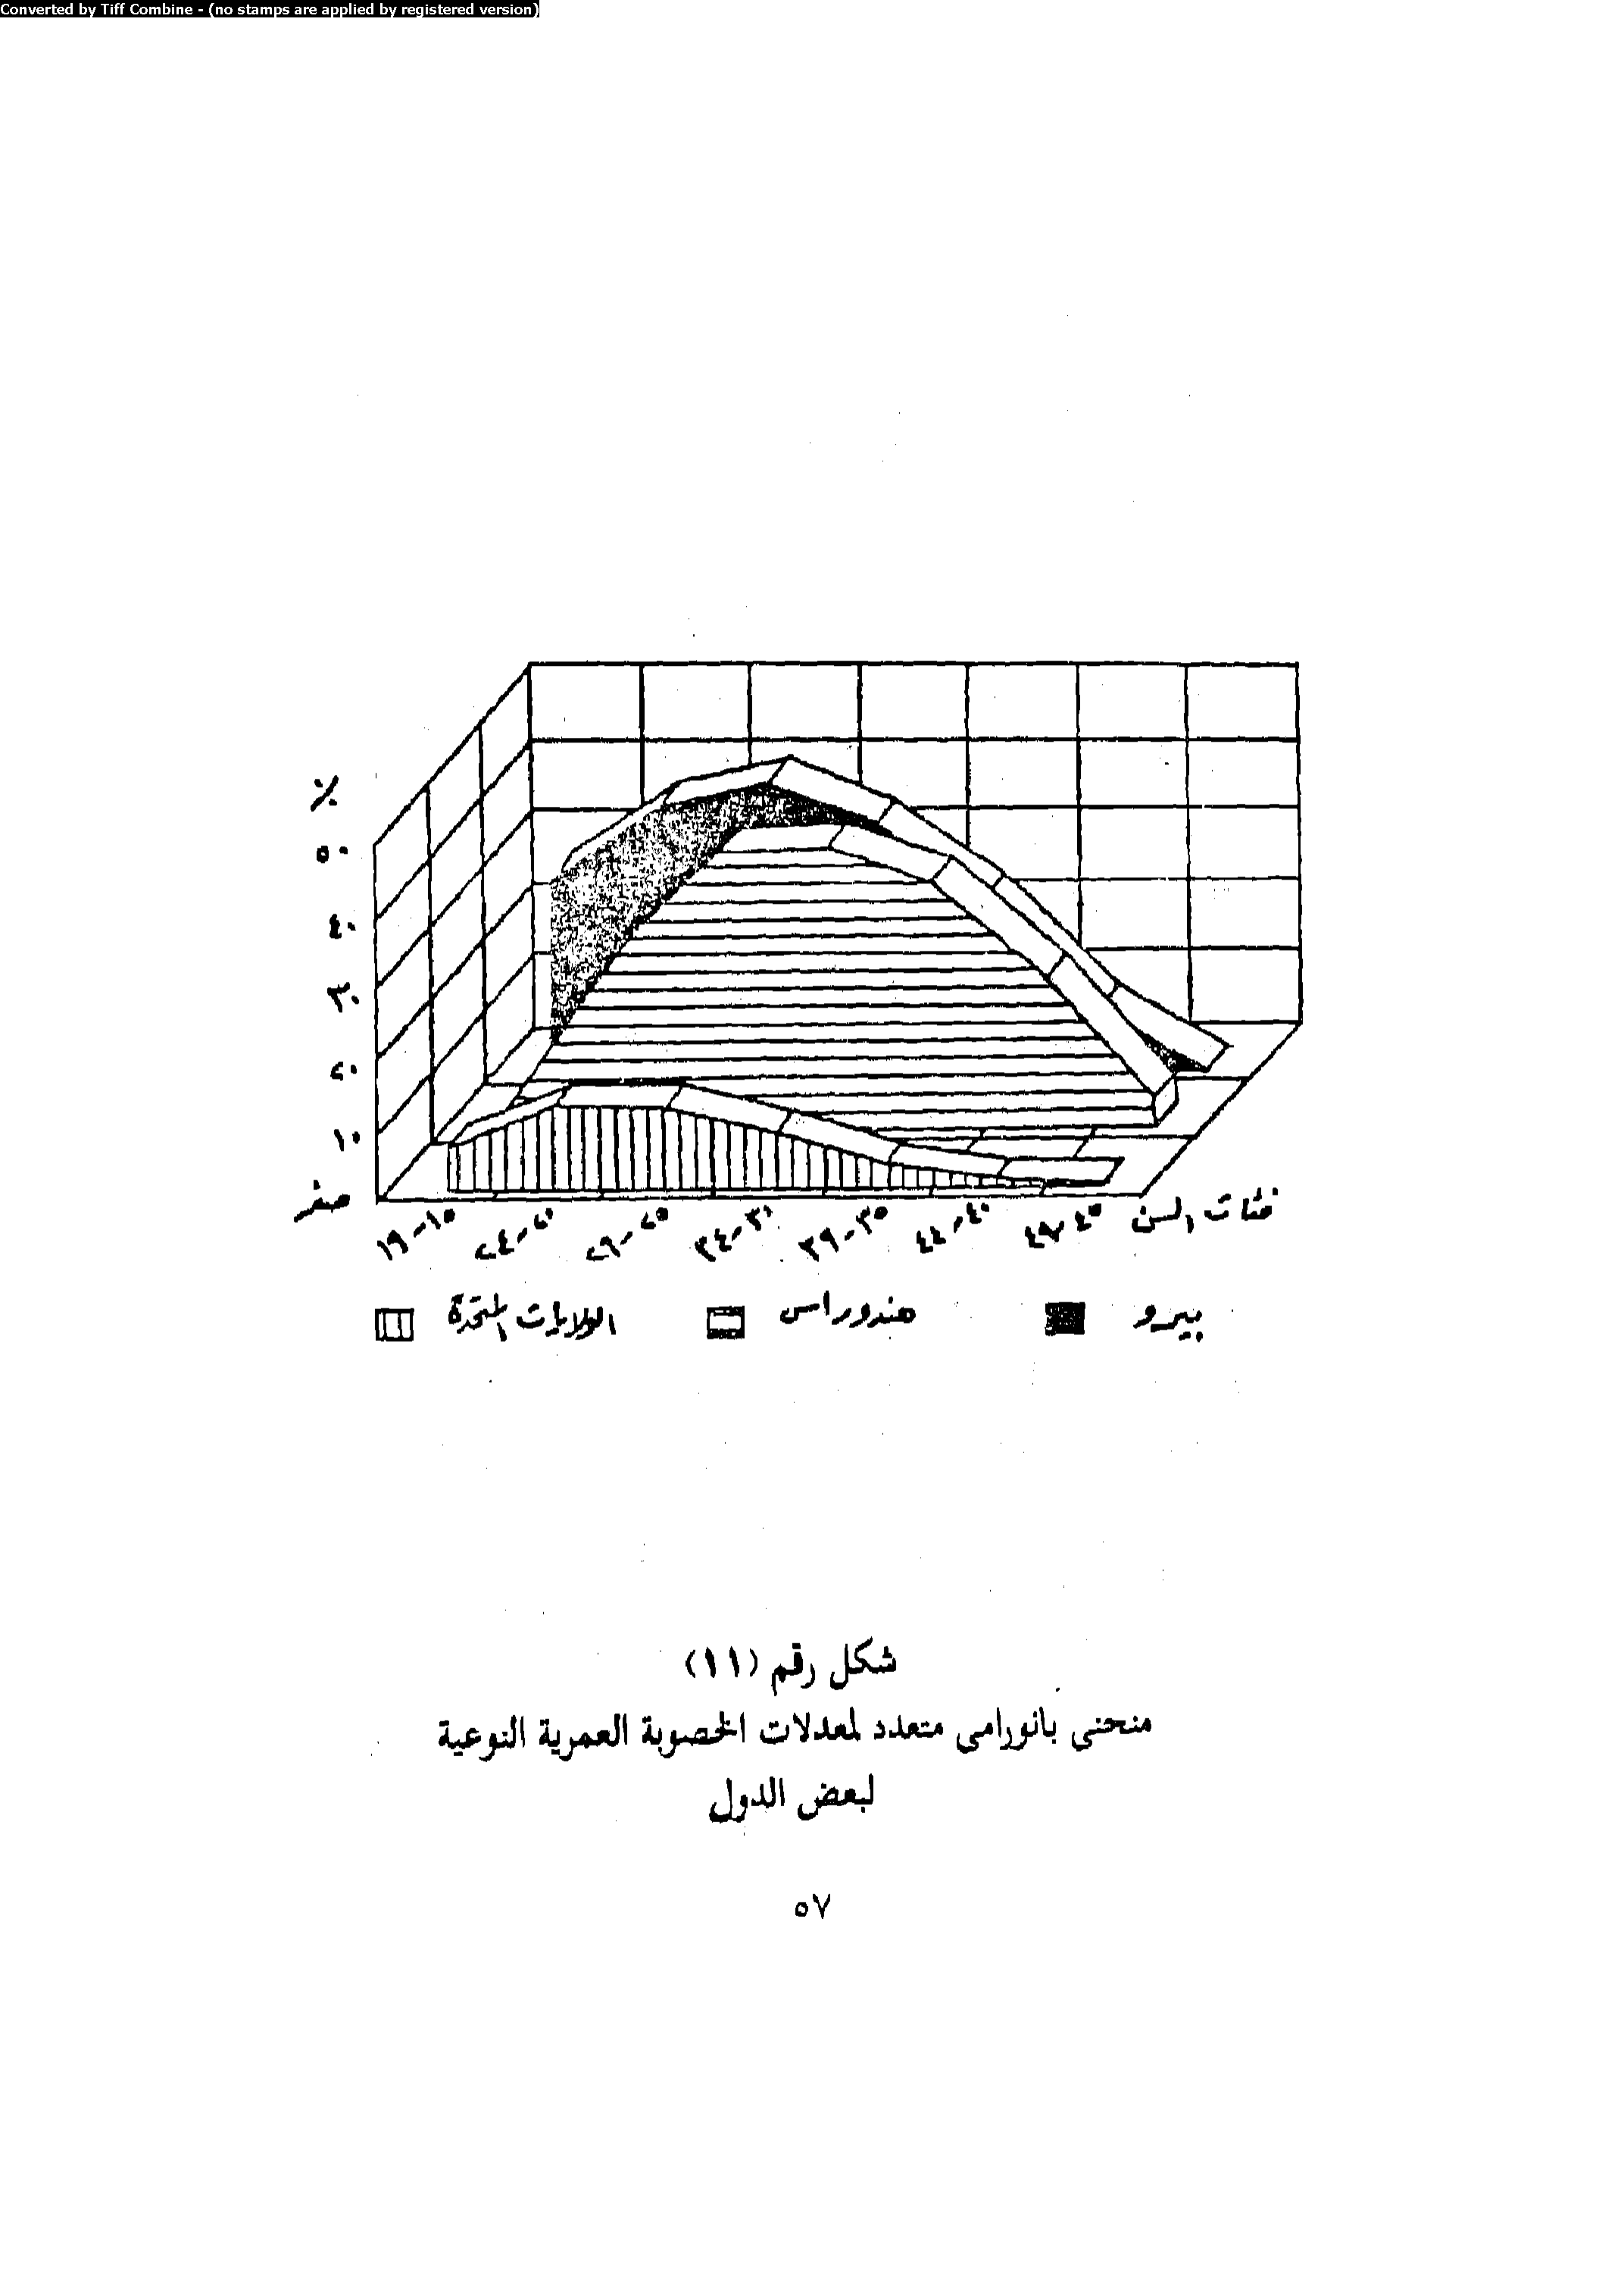 Converted by Tiff Combine - (no stamps are applied by registered version)
٪
٥٠
٤٠
٣٠
٢٠
١٠
صفر
١٥-١٩ ٢٠-٢٤ ٢٥-٢٩ ٣٠-٣٤ ٣٥-٣٩ ٤٠-٤٤ ٤٥-٤٩ فئات السن
بيرو هندوراس الولايات المتحدة
شكل رقم (١١)
منحنى بانورامى متعدد لمعدلات الخصوبة العمرية النوعية
لبعض الدول
٥٧